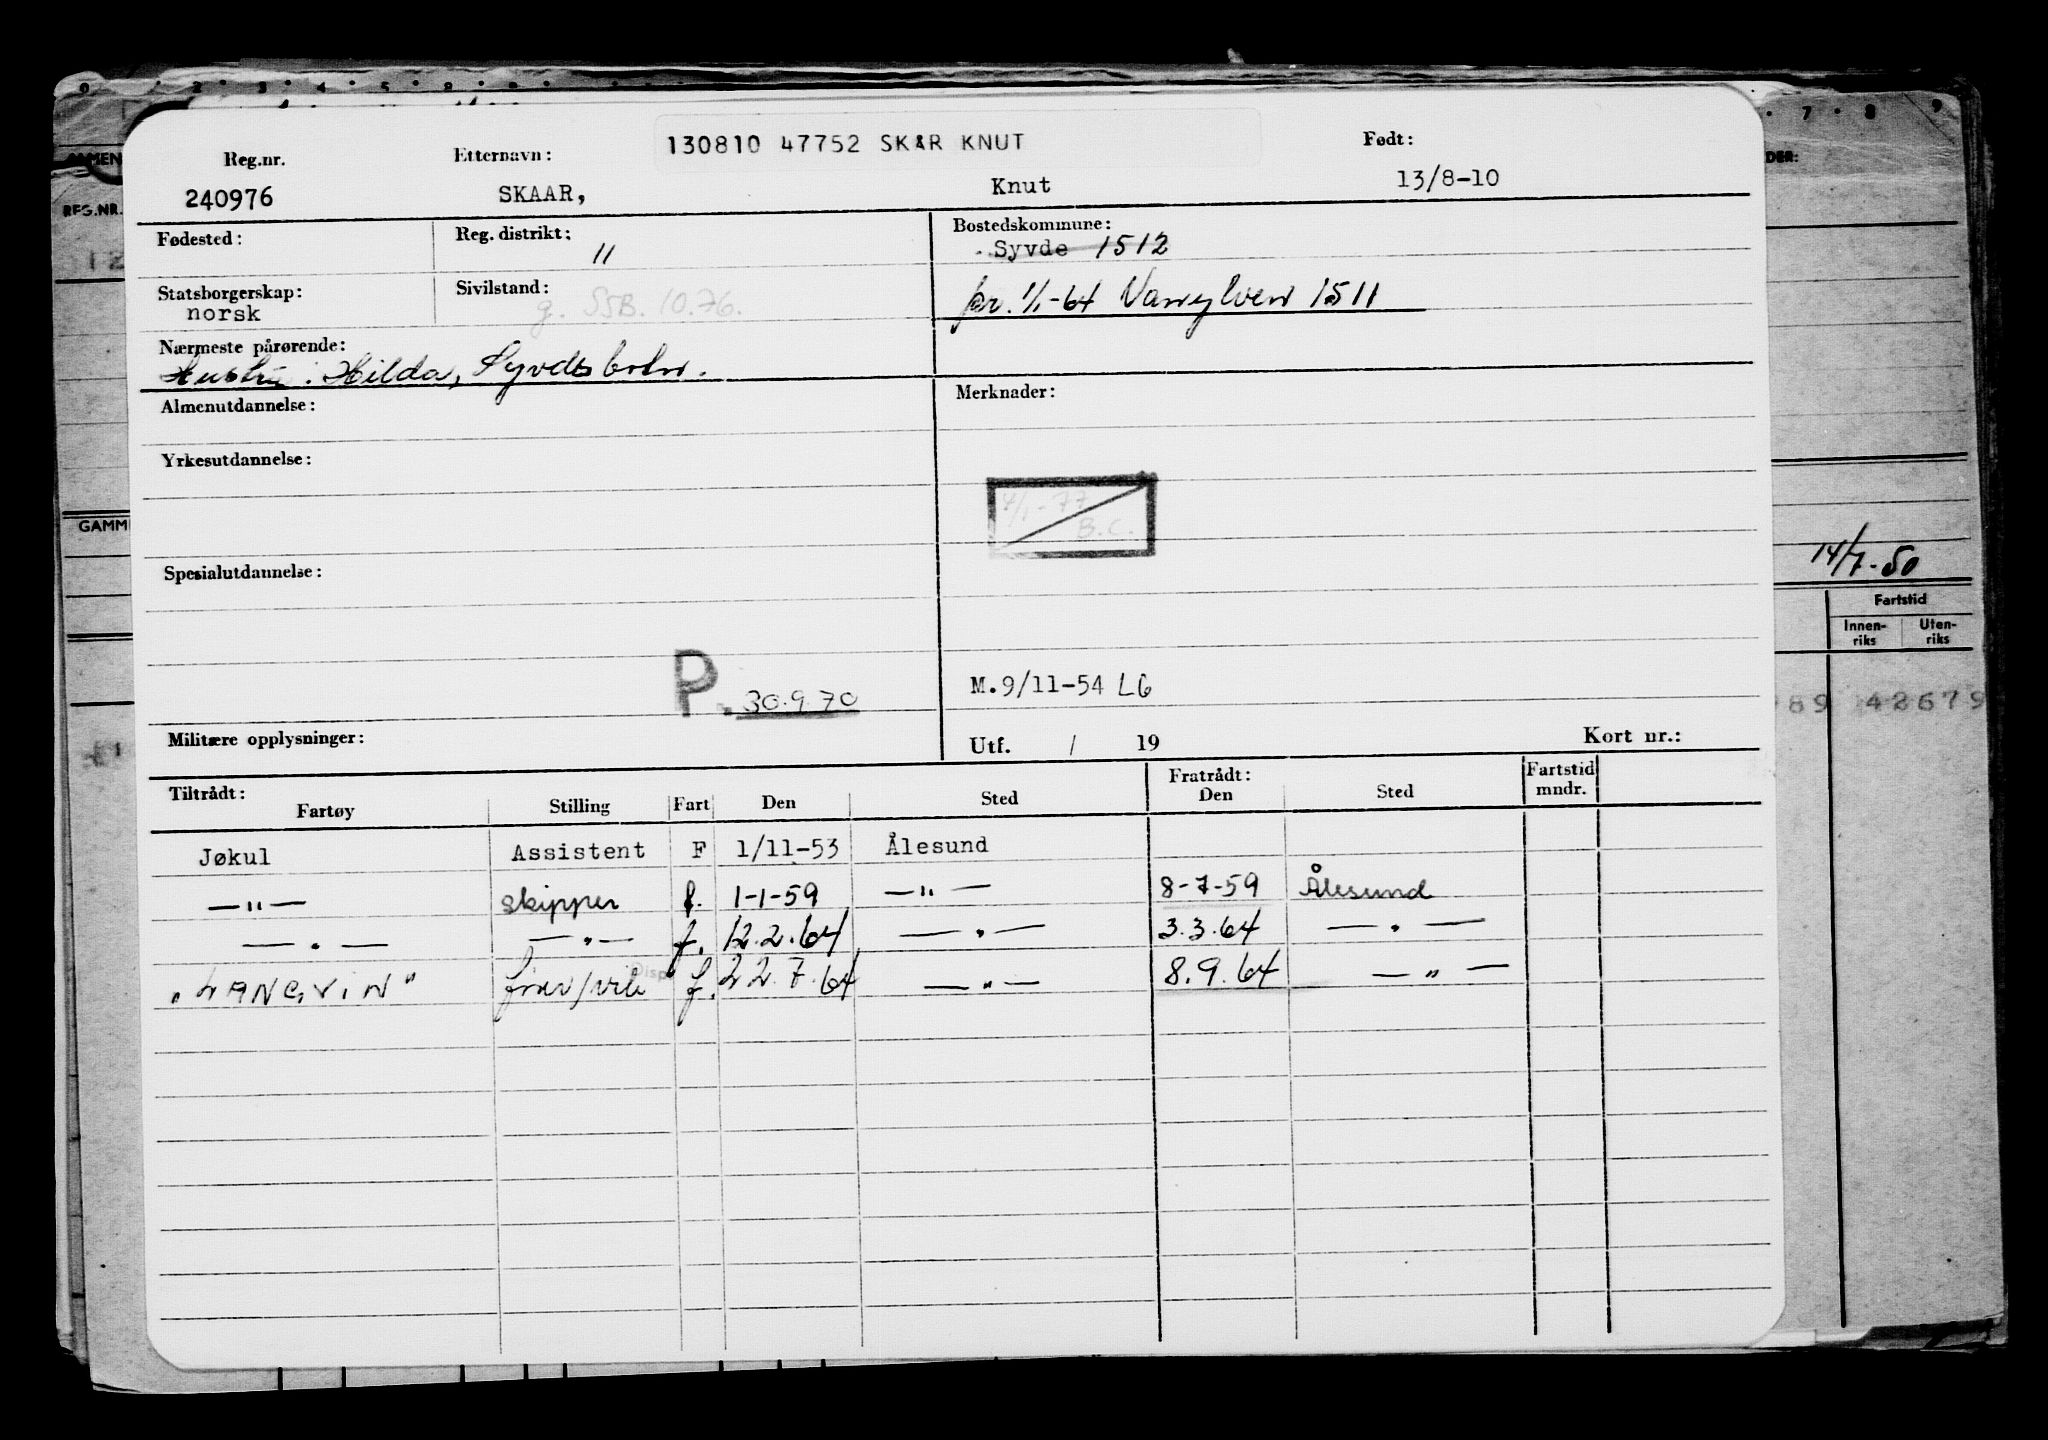 130810 47752 SKAR KNUT
Reg.nr. Etternavn: Født:
240976 SKAAR, Knut 13/8-10
Fødested: Reg. distrikt: 11 Bostedskommune:
Syvde 1512
Statsborgerskap: norsk Sivilstand: g. SSB. 10.76.
fær. 1/1-64 Vanylven 1511
Nærmeste pårørende:
Hustru: Hilda, Syvdsbotn.
Almenutdannelse: Merknader:
Yrkesutdannelse:
4/1-77
B.C.
Spesialutdannelse:
P. 30.9.70
M.9/11-54 LG
Militære opplysninger: Utf. / 19 Kort nr.:
Tiltrådt: Fratrådt:
Fartøy Stilling Fart Den Sted Den Sted Fartstid mndr.
Jøkul Assistent F 1/11-53 Ålesund
—"— skipper f. 1-1-59 —"— 8-7-59 Ålesund
—"— —"— f. 12.2.64 —"— 3.3.64 —"—
"LANGVIN" f. 22.7.64 —"— 8.9.64 —"—
REG.NR.
GAMM
DER:
14/7-50
Fartstid
Innen-
riks
Uten-
riks
89 42679